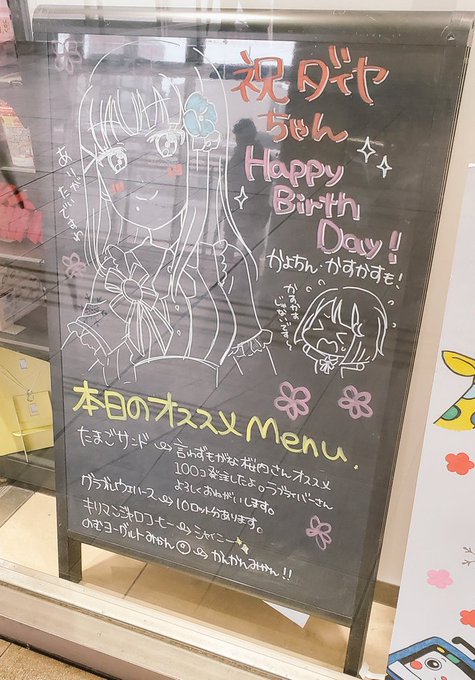 祝ダイヤ
ちゃん
Happy
Birth
Day!
かよちん・かすかすも!
ありがとですわ
かすかす
じゃないです〜
本日のオススメMenu.
たまごサンド → 言わずもがな桜内さんオススメ
100コ発注したよ。ラブライバーさん
よろしくおねがいします。
グラブルウェハース → 10ロット分あります。
キリマンジャロコーヒー → シャイニー
のむヨーグルトみかん → かんかんみかん!!